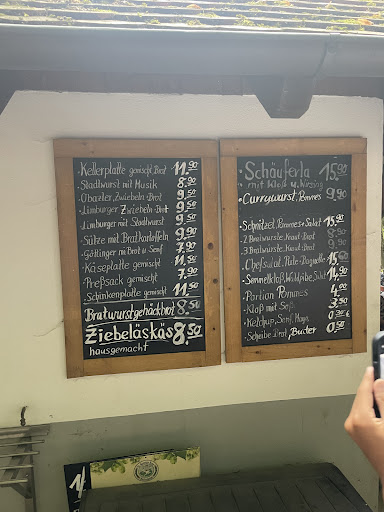 Kellerplatte gemischt, Brot 11.90
Stadtwurst mit Musik 8.90
Obazter, Zwiebeln-Brot 9.50
Limburger Zwiebeln-Brot 9.50
Limburger mit Stadtwurst 9.50
Sülze mit Bratkartoffeln 9.90
Göttinger mi Brot u Senf 7.90
Käseplatte gemischt 11.50
Preßsack gemischt 7.90
Schinkenplatte gemischt 11.50
Bratwurstgehäck Brot 8.50
Ziebeläskäs 8.50
hausgemacht
Schäuferla 15.90
mit Kloß u. Wirsing
Currywurst, Pommes 9.90
Schnitzel, Pommes + Salat 15.90
2 Bratwürste, Kraut-Brot 8.90
3 Bratwürste, Kraut-Brot 9.90
Chefsalat, Pute-Baguette 15.60
Semmelkloß, Waldpilze, Salat 14.90
Portion Pommes 4.00
Kloß mit Soß 3.50
Ketchup, Senf, Mayo
Scheibe Brot, Butter 0.50